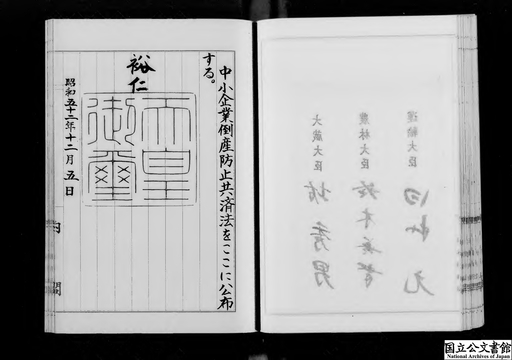 運輸大臣
田村 元
農林大臣
鈴木善幸
大蔵大臣
坊 秀男
中小企業倒産防止共済法をここに公布
する。
裕仁
天皇
御璽
昭和五十二年十二月五日
国立公文書館
National Archives of Japan